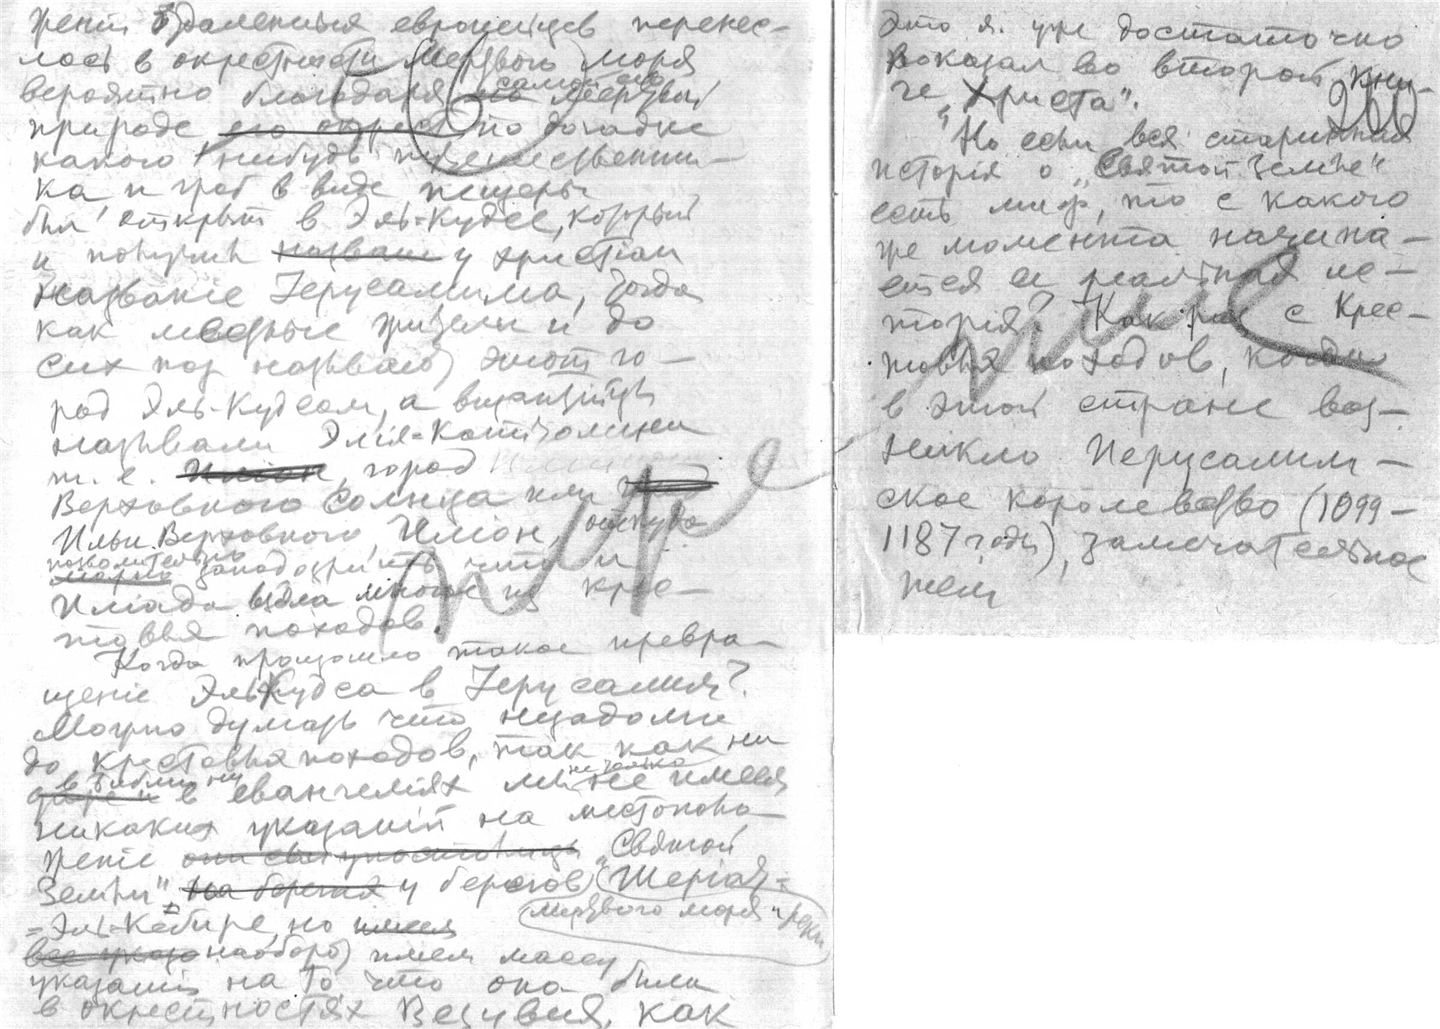 женіи отдаленныя европейцев перенес-
лось в окрестности Мертвого моря
вероятно благодаря самой его мертвый
природе его окрест по догадке
какого нибудь путешественни-
ка и гроб в виде пещеры
был открыт в Эль-Кудсе, который
и получил названіе у христіан
названіе Іерусалима, тогда
как местные жители и до
сих пор называют этот го-
род Эль-Кудсом, а византійцы
называли Эліа-Капитолина
т. е. Иліон, город
Верховного Солнца или
Ильи Верховного, Иліон, откуда
позволительно
заподозрить что и
Иліада взяла многое из крес-
товых походов.
Когда произошло такое превра-
щеніе Эль-Кудса в Іерусалим?
Можно думать что незадолго
до крестовых походов, так как ни
в Библіи ни
в евангеліях мы не только не имеем
никаких указаній на местополо-
женіе "Святой
Земли", на берегах у берегов Шеріат-
мертвого моря и реки
=Эль-Кебире, но имеем
все указа наоборот имеем массу
указаній на то что она была
в окрестностях Везувия, как
это я уже достаточно
показал во второй кни-
ге "Христа".
200
Но если вся старинная
исторія о "Святой Земле"
есть миф, то с какого
же момента начина-
ется ея реальная ис-
торія? Как раз с Крес-
товых походов, когда
в этой стране воз-
никло Иерусалим-
ское королевство (1099-
1187 годы), замечательное
тем